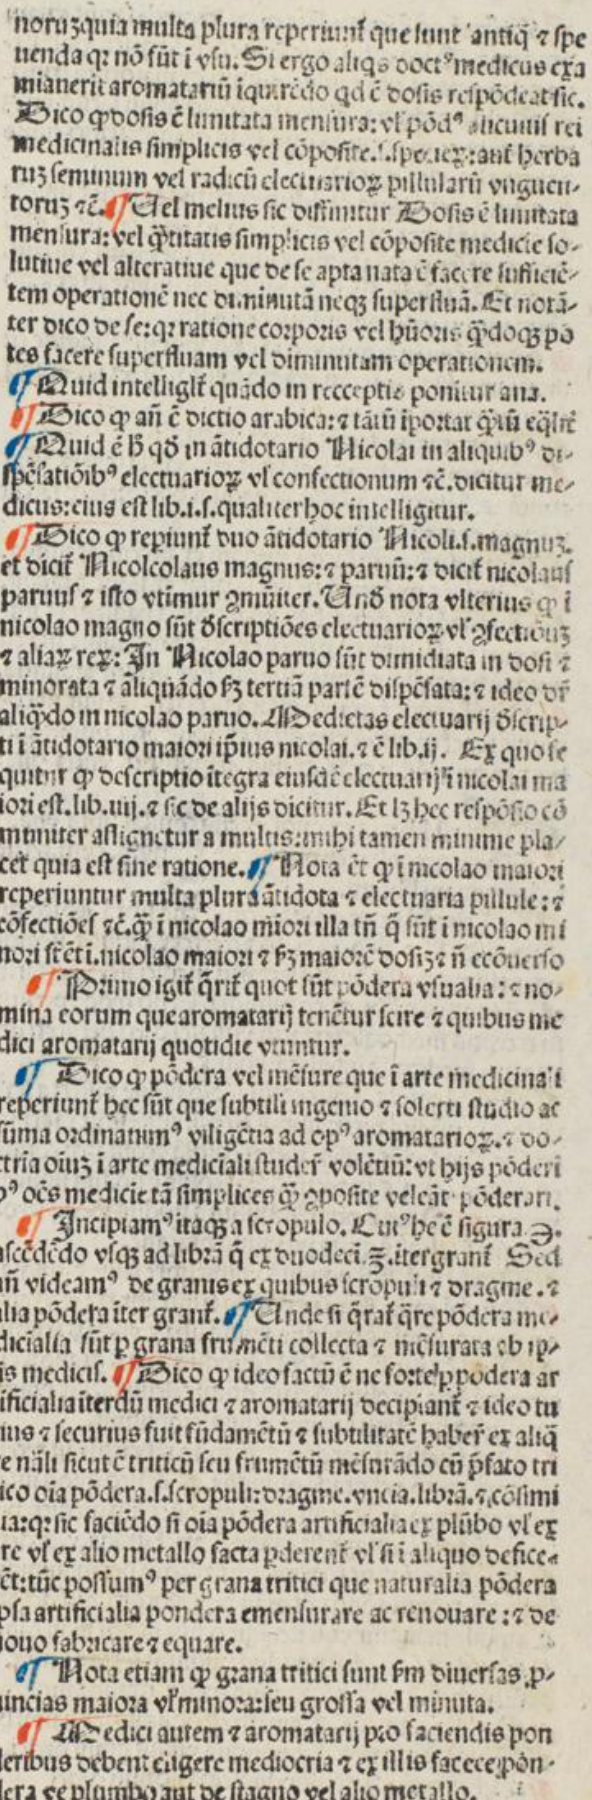 noruꝫ quia multa plura reperiunt᷑ que sunt antiq̃ ⁊ spe
uenda qꝛ nõ sũt ĩ vsu. Si ergo aliqͥs doct⁹ medicus exa
minauerit aromatariũ ĩquirẽdo qd ẽ dosis respõdeat sic.
Dico ꝙ dosis ẽ limitata mensura: vl' põd⁹ alicuius rei
medicinalis simplicis vel cõposite.s. speciex: aut herba
ruꝫ seminum vel radicũ electuarioꝝ pillularũ vnguen-
toruꝫ ⁊c̃. ¶ Uel melius sic diffinitur Dosis ẽ limitata
mensura: vel q̃titatis simplicis vel cõposite medicie so-
lutiue vel alteratiue que de se apta nata ẽ facere sufficiẽ-
tem operationẽ nec diminutã neqꝫ superfluã. Et notã-
ter dico de se: qꝛ ratione corporis vel hũoris q̃doqꝫ po
tes facere superfluam vel diminutam operationem.
¶ Quid intelligit᷑ quãdo in recceptis ponitur ana.
¶ Dico ꝙ añ ẽ dictio arabica: ⁊ tãtũ ĩportat q̃tũ eq̃lit᷑
¶ Quid ẽ h̃ qđ in ãtidotario Nicolai in aliquib⁹ di-
spẽsatiõib⁹ electuarioꝝ vl' confectionum ⁊c̃. dicitur me-
dicus: eius est lib.i.s. qualiter hoc intelligitur.
¶ Dico ꝙ repiunt᷑ duo ãtidotario Nicoli.s. magnuꝫ.
et dicit᷑ Nicolcolaus magnus: ⁊ paruũ: ⁊ dicit᷑ nicolaus
paruus ⁊ isto vtimur ꝯmũiter. Unđ nota vlterius ꝙ ĩ
nicolao magno sũt đscriptiões electuarioꝝ vl' ꝯfectionuꝫ
⁊ aliaꝝ reꝝ: In Nicolao paruo sũt dimidiata in dosi ⁊
minorata ⁊ aliquãdo ẜꝫ tertiã partẽ dispẽsata: ⁊ ideo dr̃
aliq̃do in nicolao paruo. Medietas electuarij đscrip-
ti ĩ ãtidotario maiori ip̃ius nicolai. ⁊ ẽ lib.ij. Ex quo se
quitur ꝙ descriptio ĩtegra eiusdẽ electuarij ĩ nicolai ma
iori est. lib.iiij. ⁊ sic de alijs dicitur. Et lꝫ hec respõsio cõ
muniter assignetur a multis: mihi tamen minime pla-
cet quia est sine ratione. ¶ Nota ẽt ꝙ ĩ nicolao maiori
reperiuntur multa plura ãtidota ⁊ electuaria pillule: ⁊
cõfectiões ⁊c̃. q̃ ĩ nicolao miori illa tñ q̃ sũt ĩ nicolao mi
nori st̃ ẽt ĩ. nicolao maiori ⁊ ẜꝫ maiorẽ dosiꝫ ⁊ ñ ecõuerso
¶ Primo igit᷑ q̃rit᷑ quot sũt põdera vsualia: ⁊ no-
mina eorum que aromatarij tenẽtur scire ⁊ quibus me
dici aromatarij quotidie vtuntur.
¶ Dico ꝙ põdera vel mẽsure que ĩ arte medicinali
reperiunt᷑ hec sũt que subtili ingenio ⁊ solerti studio ac
sũma ordinatum⁹ viligẽtia ad op⁹ aromatarioꝝ. ⁊ do-
ctria oiuꝫ ĩ arte mediciali studer̃ volẽtiũ: vt hijs põderi
b⁹ oẽs medicie tã simplices q̃ ꝯposite veleãt põderari.
¶ Incipiam⁹ itaqꝫ a scropulo. Cui⁹ hec ẽ figura ℈.
ascẽdẽdo vsqꝫ ad librã q̃ ex duodeci. ℥. ĩtergrant᷑ Sed
añ videam⁹ de granis ex quibus scropuli ⁊ dragme. ⁊
alia põdera ĩter grant᷑. ¶ Unde si q̃rat᷑ q̃re põdera me-
dicialia sũt ꝑ grana frumẽti collecta ⁊ mẽsurata ab ip-
is medicis. ¶ Dico ꝙ ideo factũ ẽ ne forte ꝓp põdera ar
ificialia ĩterdũ medici ⁊ aromatarij decipiant᷑ ⁊ ideo tu
ius ⁊ securius fuit fũdamẽtũ ⁊ subtilitatẽ haber̃ ex aliq̃
e nãli sicut ẽ triticũ seu frumẽtũ mẽsurãdo cũ p̃fato tri
ico oĩa põdera.s. scropuli: dragme. vncia. librã. ⁊ cõsimi
ia: qꝛ sic faciẽdo si oĩa põdera artificialia ex plũbo vl' ex
re vl' ex alio metallo facta ꝑderent᷑ vl' si ĩ aliquo defice-
ẽt: tũc possum⁹ per grana tritici que naturalia põdera
psa artificialia pondera emensurare ac renouare: ⁊ de
iouo fabricare ⁊ equare.
¶ Nota etiam ꝙ grana tritici sunt ẜm diuersas ꝓ-
uincias maiora vl' minora: seu grossa vel minuta.
¶ Medici autem ⁊ aromatarij pro faciendis pon
deribus debent eligere mediocria ⁊ ex illis facere põn-
dera ve plumbo aut de stagno vel alio metallo.